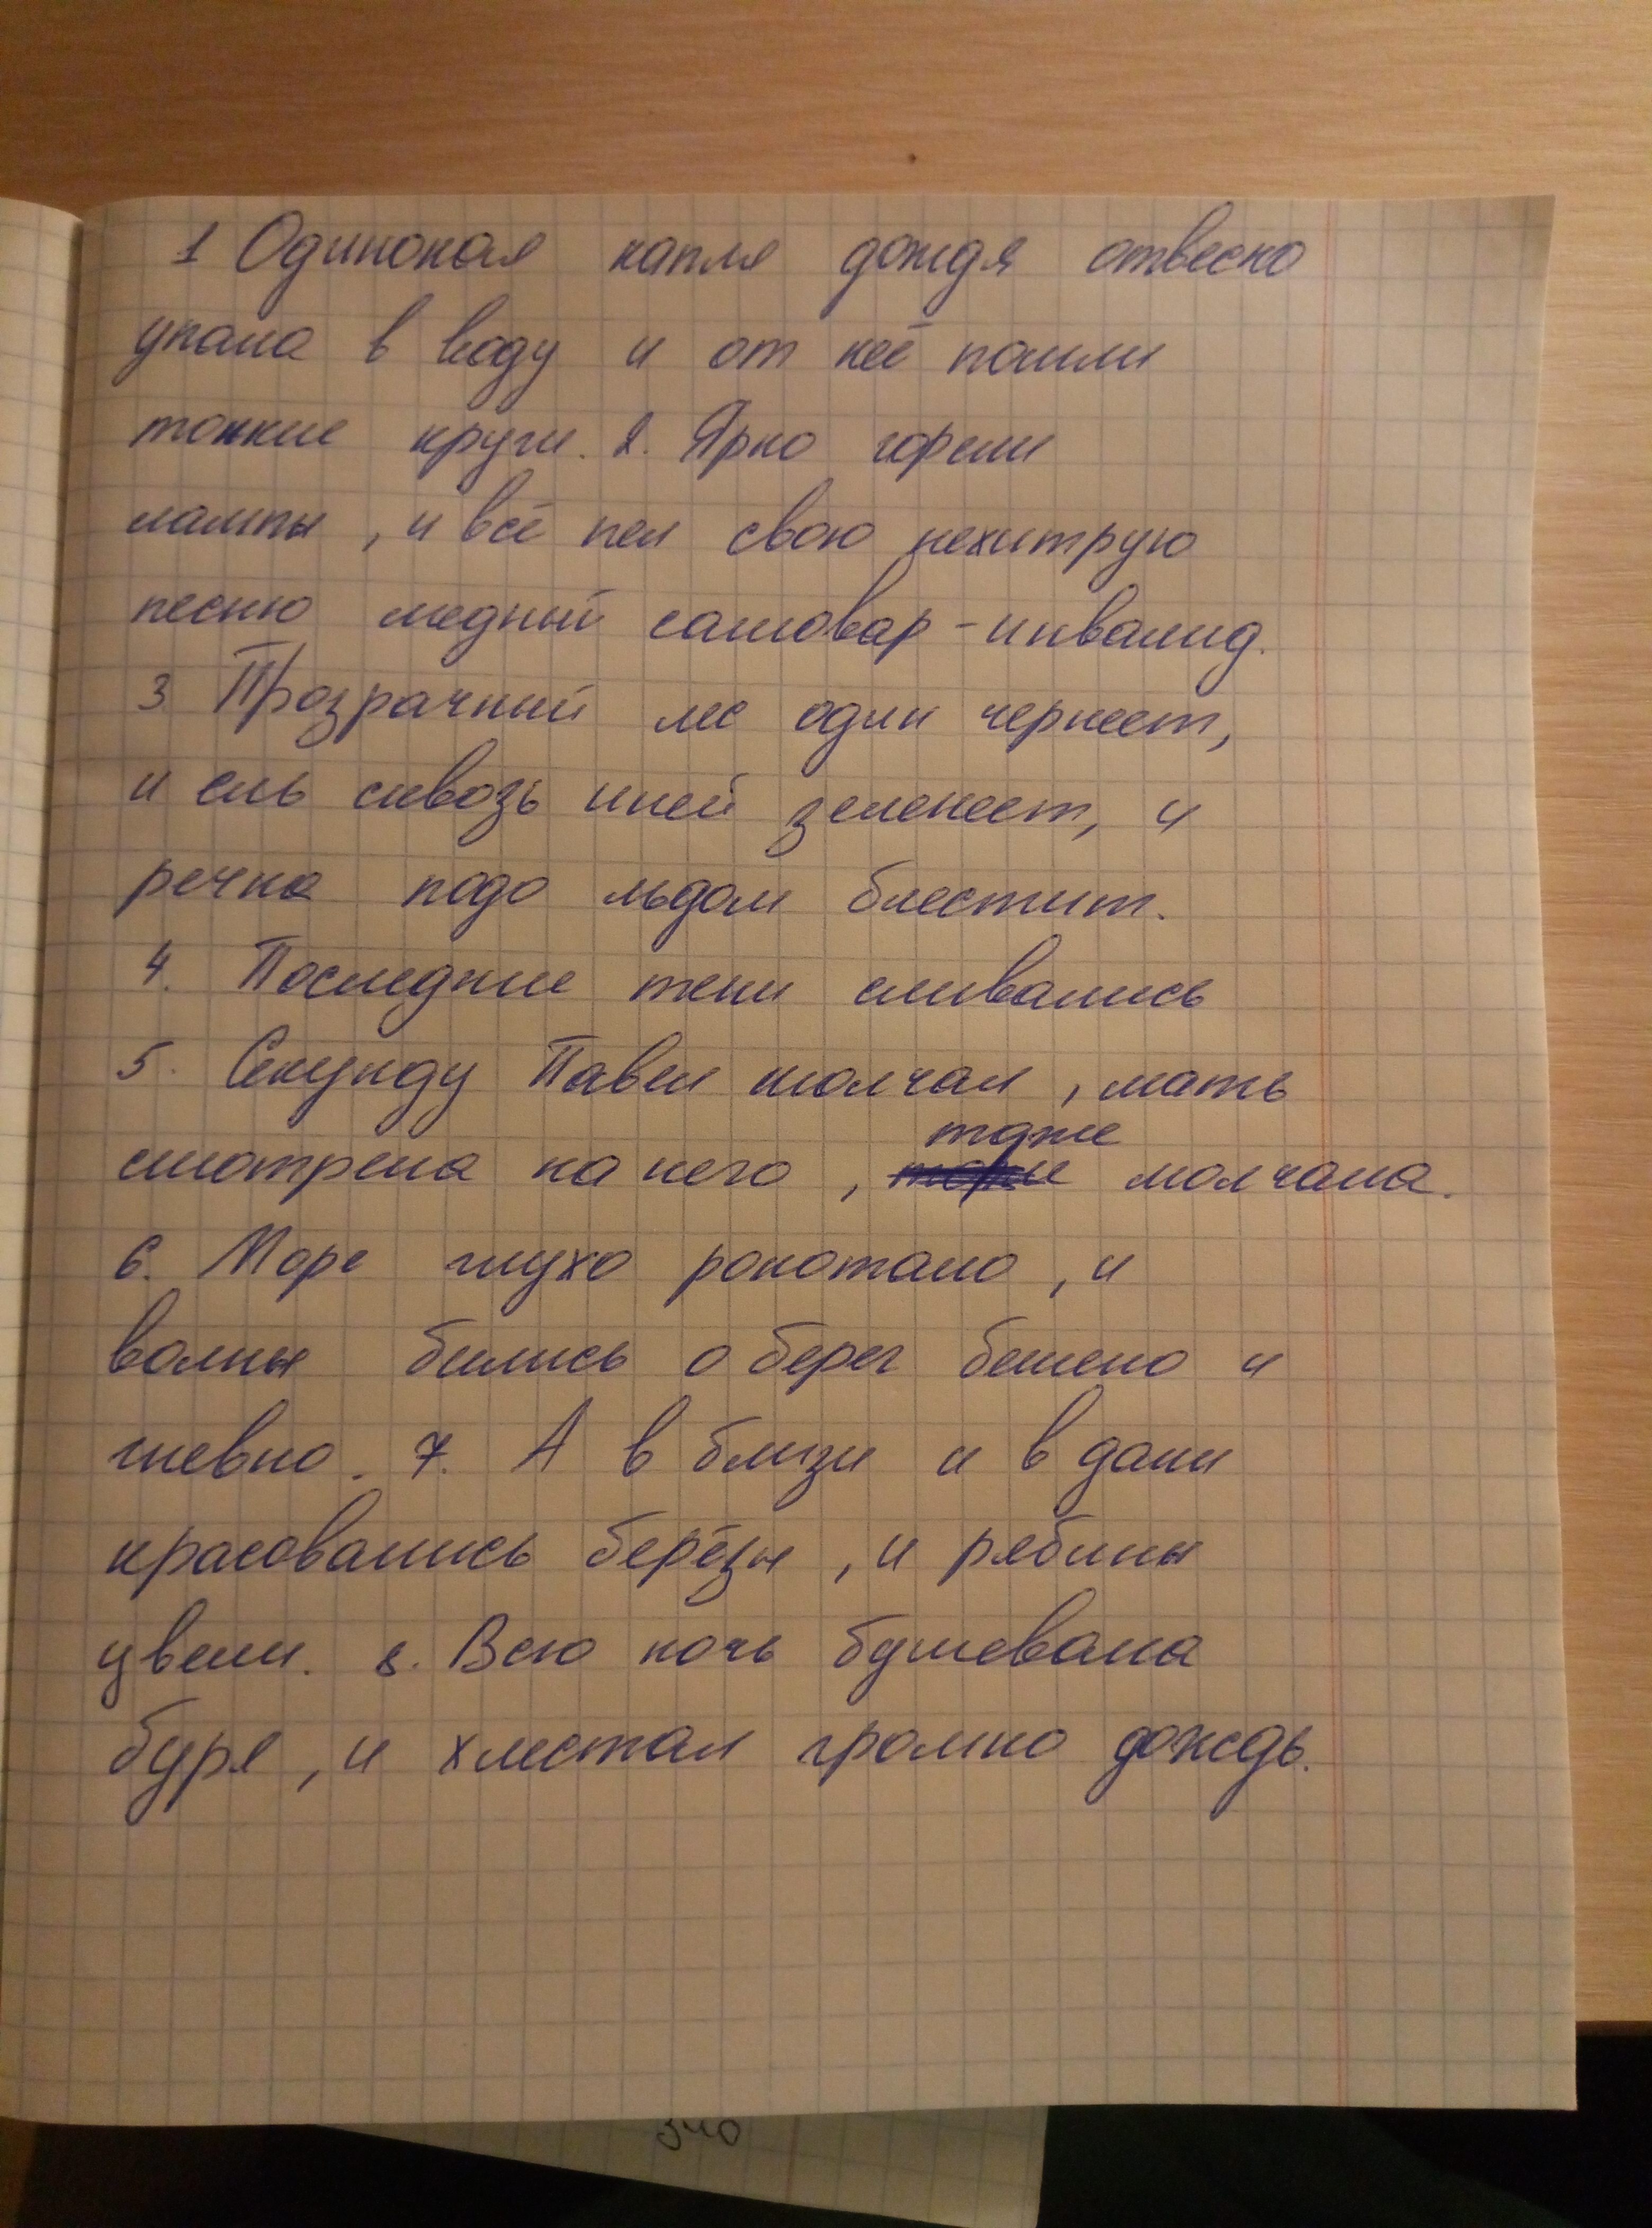 1 Одинокая капля дождя отвесно
упала в воду и от неё пошли
тонкие круги. 2. Ярко горели
лампы, и всё пел свою нехитрую
песню медный самовар-инвалид.
3 Прозрачный лес один чернеет,
и ель сквозь иней зеленеет, и
речка подо льдом блестит.
4. Последние тени сливались
5. Секунду Павел молчал, мать
тоже
смотрела на него, молчала.
6. Море глухо рокотало, и
волны бились о берег бешено и
гневно. 7. А в близи и в дали
красовались берёзы, и рябины
цвели. 8. Всю ночь бушевала
буря, и хлестал громко дождь.
340